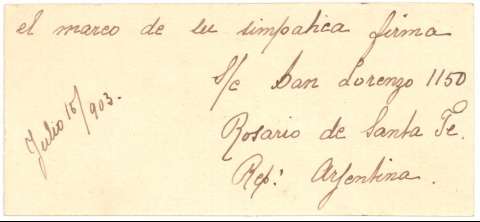 el marco de su simpatica firma
S/c San Lorenzo 1150
Rosario de Santa Fe.
Rep: Argentina.
Julio 15/903.